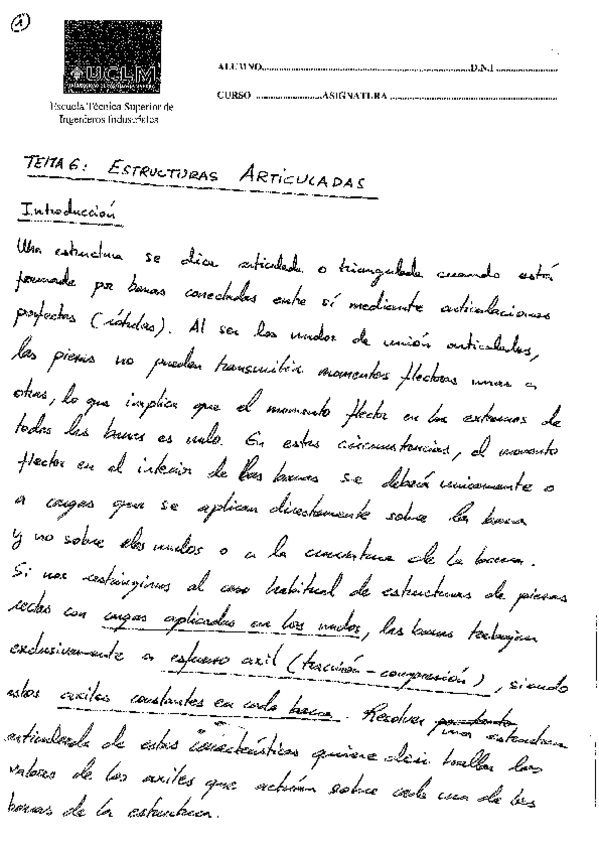 1
UCLM
Escuela Técnica Superior de
Ingenieros Industriales
ALUMNO D.N.I
CURSO ASIGNATURA
TEMA 6: ESTRUCTURAS ARTICULADAS
Introducción
Una estructura se dice articulada o triangulada cuando está
formada por barras conectadas entre sí mediante articulaciones
perfectas (rótulas). Al ser los nudos de unión articulados,
las piezas no pueden transmitir momentos flectores unas a
otras, lo que implica que el momento flector en los extremos de
todas las barras es nulo. En estas circunstancias, el momento
flector en el interior de las barras se deberá unicamente o
a cargas que se aplican directamente sobre la barra
y no sobre los nudos o a la curvatura de la barra.
Si nos restringimos al caso habitual de estructuras de piezas
rectas con cargas aplicadas en los nudos, las barras trabajan
exclusivamente a esfuerzo axil (tracción-compresión), siendo
estos axiles constantes en cada barra. Resolver una estructura
articulada de estas características quiere decir hallar los
valores de los axiles que actúan sobre cada una de las
barras de la estructura.